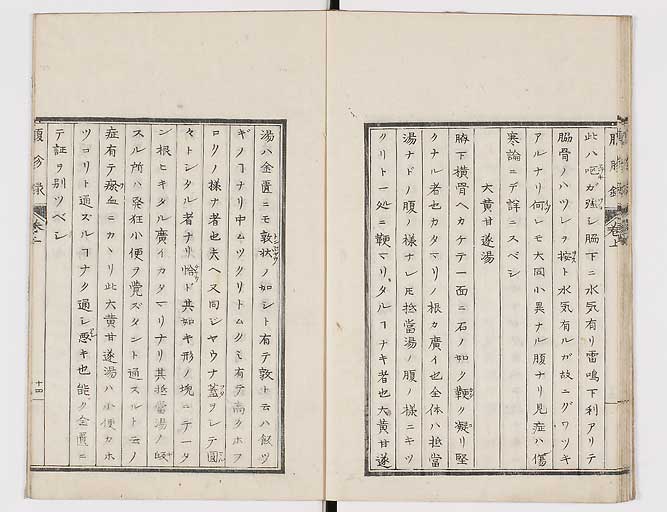 此ハ呕ガ強シ脇下ニ水気有リ雷鳴下利アリテ
脇骨ノハツレヲ按ト水気有ルガ故ニグワツキ
アルナリ何レモ大同小異ナル腹ナリ見症ハ傷
寒論ニテ詳ニスベシ
大黄甘遂湯
脐下横骨ヘカケテ一面ニ石ノ如ク鞕ク凝リ堅
クナル者也カタマリノ根カ廣イ也全体ハ抵當
湯ナドノ腹ノ様ナレ𪜈抵當湯ノ腹ノ様ニキツ
クリト一処ニ鞕マリタルヿナキ者也大黄甘遂
湯ハ金匱ニモ敦状ノ如シト有テ敦ト云ハ飯ツ
ギノヿナリ中ムツクリトムクミ有テ高クホフ
ロクノ様ナ者也夫ヘ又同シヤウナ蓋ヲシテ圓
々トシタル者ナリ恰ド其如キ形ノ塊ニテータ
ン根ヒキタル廣イカタマリナリ其抵當湯ノ
スル所ハ發狂小便ヲ覚ズタント通スルト云ノ
症有テ瘀血ニカヽリ此大黄甘遂湯ハ小便カホ
ツコリト通ズルヿナク通シ悪キ也能ク金匱ニ
テ証ヲ別ツベシ
腹診録
卷上
十四